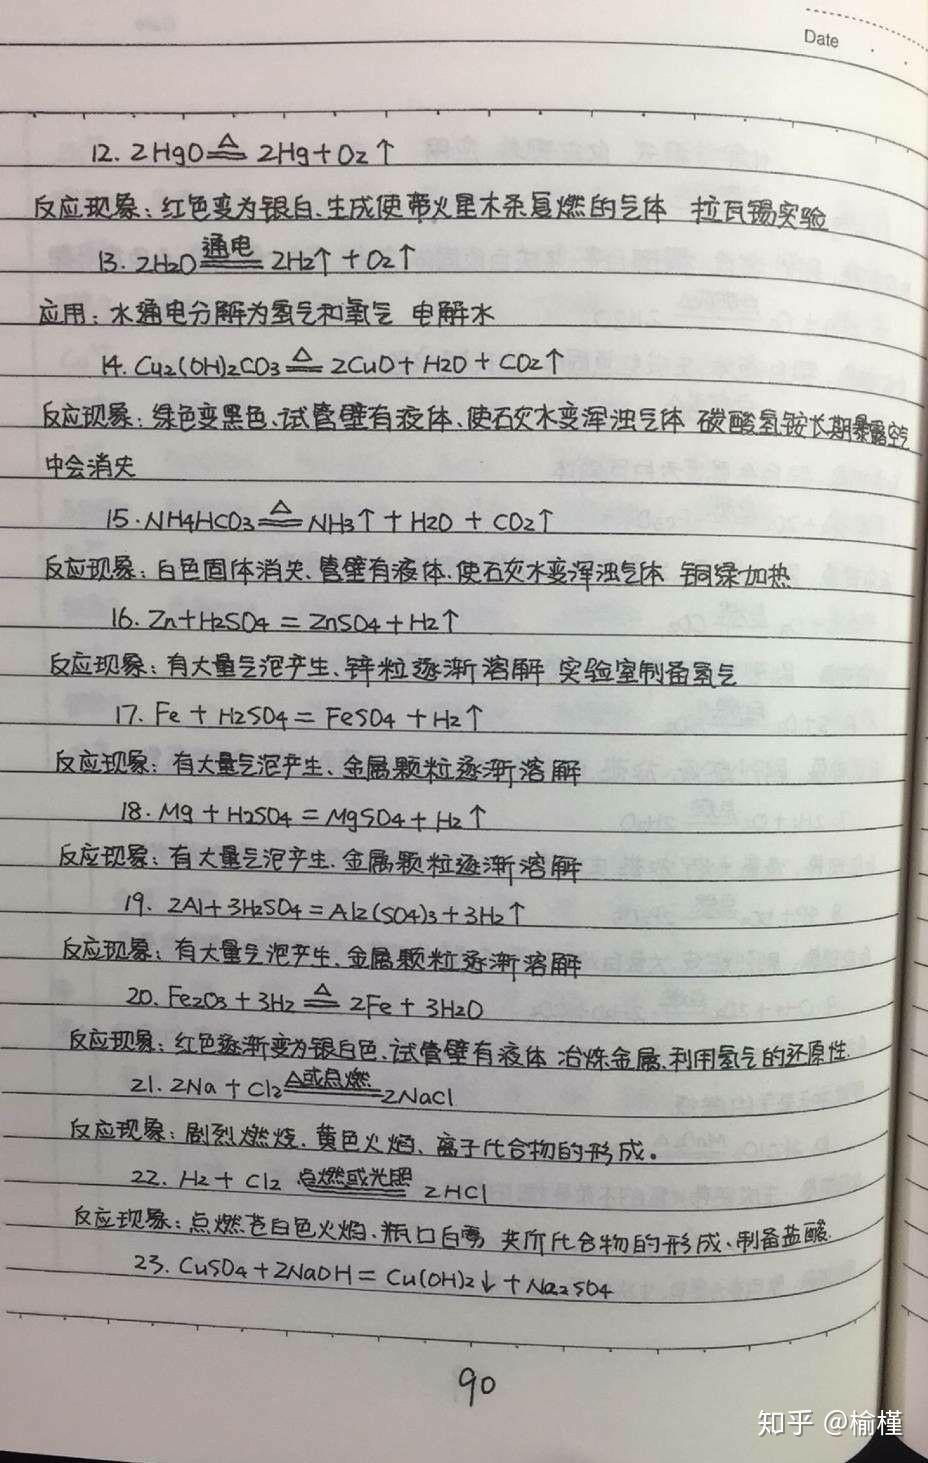 Date
12. 2HgO ≜ 2Hg+O2↑
反应现象：红色变为银白、生成使带火星木条复燃的气体 拉瓦锡实验
通电
13. 2H2O == 2H2↑ + O2↑
应用：水通电分解为氢气和氧气 电解水
14. Cu2(OH)2CO3 ≜ 2CuO + H2O + CO2↑
反应现象：绿色变黑色、试管壁有液体、使石灰水变浑浊气体 碳酸氢铵长期暴露空气
中会消失
15. NH4HCO3 ≜ NH3↑ + H2O + CO2↑
反应现象：白色固体消失、管壁有液体、使石灰水变浑浊气体 铜绿加热
16. Zn+H2SO4 = ZnSO4+H2↑
反应现象：有大量气泡产生、锌粒逐渐溶解 实验室制备氢气
17. Fe + H2SO4 = FeSO4 + H2↑
反应现象：有大量气泡产生、金属颗粒逐渐溶解
18. Mg + H2SO4 = MgSO4 + H2↑
反应现象：有大量气泡产生、金属颗粒逐渐溶解
19. 2Al+3H2SO4=Al2(SO4)3+3H2↑
反应现象：有大量气泡产生、金属颗粒逐渐溶解
20. Fe2O3 + 3H2 ≜ 2Fe + 3H2O
反应现象：红色逐渐变为银白色、试管壁有液体 冶炼金属、利用氢气的还原性
△或点燃
21. 2Na + Cl2 == 2NaCl
反应现象：剧烈燃烧、黄色火焰、离子化合物的形成。
点燃或光照
22. H2 + Cl2 == 2HCl
反应现象：点燃苍白色火焰、瓶口白雾 共价化合物的形成、制备盐酸
23. CuSO4+2NaOH = Cu(OH)2↓ + Na2SO4
90
知乎 @榆槿